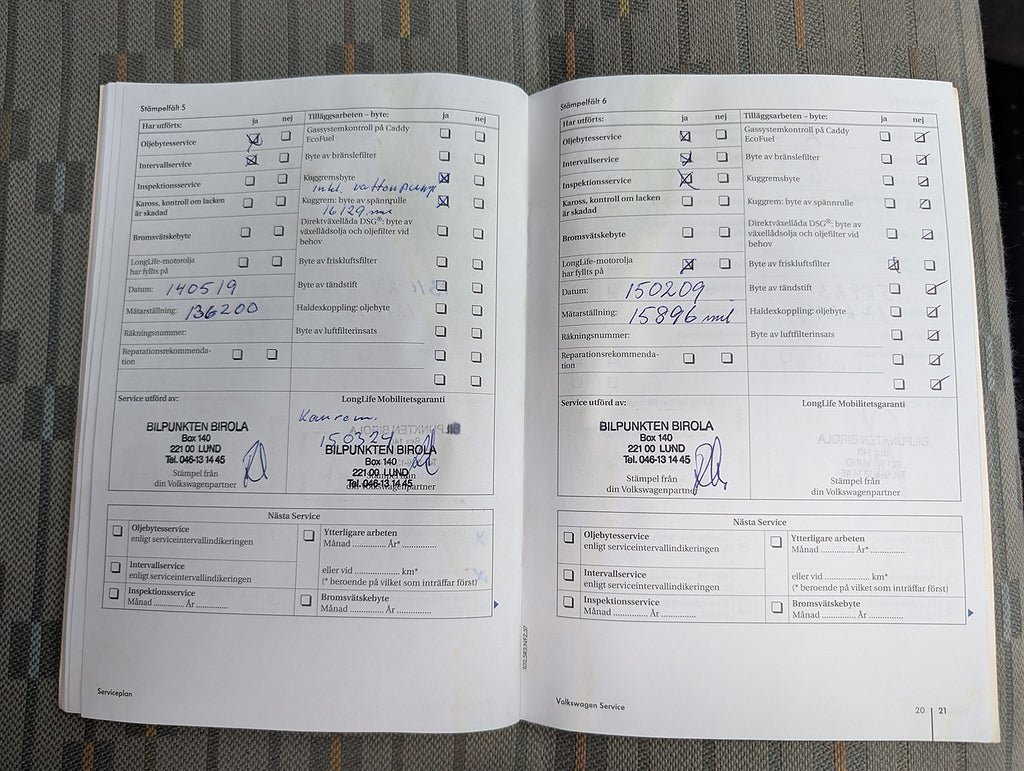 Stämpelfält 5
Har utförts: ja nej
Oljebytesservice
Intervallservice
Inspektionsservice
Kaross, kontroll om lacken
är skadad
Bromsvätskebyte
LongLife-motorolja
har fyllts på
Datum: 140519
Mätarställning: 136200
Räkningsnummer:
Reparationsrekommenda-
tion
Tilläggsarbeten – byte: ja nej
Gassystemkontroll på Caddy
EcoFuel
Byte av bränslefilter
Kuggremsbyte
inkl vattenpump
Kuggrem: byte av spännrulle
16129 mil
Direktväxellåda DSG®: byte av
växellådsolja och oljefilter vid
behov
Byte av friskluftsfilter
Byte av tändstift
Haldexkoppling: oljebyte
Byte av luftfilterinsats
Service utförd av:
BILPUNKTEN BIROLA
Box 140
221 00 LUND
Tel. 046-13 14 45
Stämpel från
din Volkswagenpartner
LongLife Mobilitetsgaranti
Kamrem.
150324
BILPUNKTEN BIROLA
Box 140
221 00 LUND
Tel. 046-13 14 45
Stämpel från
din Volkswagenpartner
Nästa Service
Oljebytesservice
enligt serviceintervallindikeringen
Intervallservice
enligt serviceintervallindikeringen
Inspektionsservice
Månad ............ År ............
Ytterligare arbeten
Månad ............ År* ............
eller vid ............ km*
(* beroende på vilket som inträffar först)
Bromsvätskebyte
Månad ............ År ............
Serviceplan
102.5R3.NFZ.37
Stämpelfält 6
Har utförts: ja nej
Oljebytesservice
Intervallservice
Inspektionsservice
Kaross, kontroll om lacken
är skadad
Bromsvätskebyte
LongLife-motorolja
har fyllts på
Datum: 150209
Mätarställning: 15896 mil
Räkningsnummer:
Reparationsrekommenda-
tion
Tilläggsarbeten – byte: ja nej
Gassystemkontroll på Caddy
EcoFuel
Byte av bränslefilter
Kuggremsbyte
Kuggrem: byte av spännrulle
Direktväxellåda DSG®: byte av
växellådsolja och oljefilter vid
behov
Byte av friskluftsfilter
Byte av tändstift
Haldexkoppling: oljebyte
Byte av luftfilterinsats
Service utförd av:
BILPUNKTEN BIROLA
Box 140
221 00 LUND
Tel. 046-13 14 45
Stämpel från
din Volkswagenpartner
LongLife Mobilitetsgaranti
Stämpel från
din Volkswagenpartner
Nästa Service
Oljebytesservice
enligt serviceintervallindikeringen
Intervallservice
enligt serviceintervallindikeringen
Inspektionsservice
Månad ............ År ............
Ytterligare arbeten
Månad ............ År* ............
eller vid ............ km*
(* beroende på vilket som inträffar först)
Bromsvätskebyte
Månad ............ År ............
Volkswagen Service
20 21